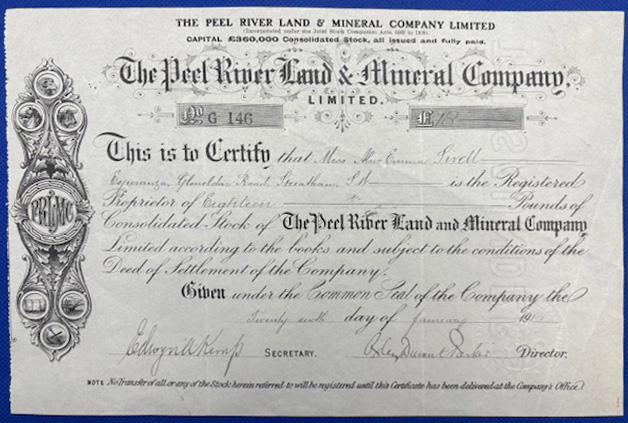 THE PEEL RIVER LAND & MINERAL COMPANY LIMITED
(Incorporated under the Joint Stock Companies Acts, 1862 to 1890).
CAPITAL £360,000 Consolidated Stock, all issued and fully paid.
The Peel River Land & Mineral Company,
LIMITED.
No G 146
£18
This is to Certify that Miss Emma Sivell
Esperanza, Gleneldon Road, Streatham, S.W. is the Registered
Proprietor of Eighteen Pounds of
Consolidated Stock of The Peel River Land and Mineral Company
Limited according to the books and subject to the conditions of the
Deed of Settlement of the Company.
Given under the Common Seal of the Company the
Twenty sixth day of January 191
PRLMC
Edwyn A Kemp SECRETARY. Durant Parker Director.
NOTE No Transfer of all or any of the Stock herein referred to will be registered until this Certificate has been delivered at the Company's Office.